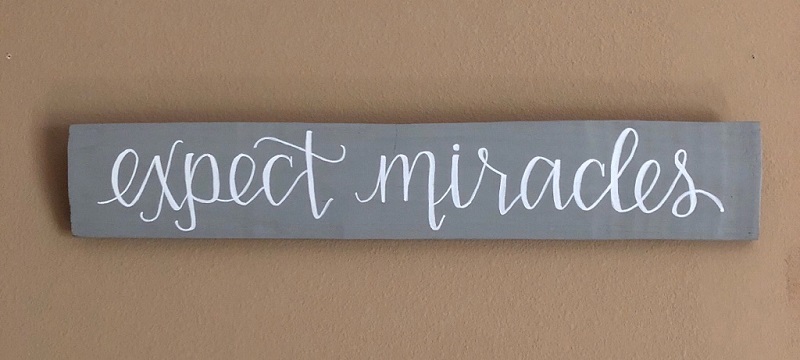 expect miracles